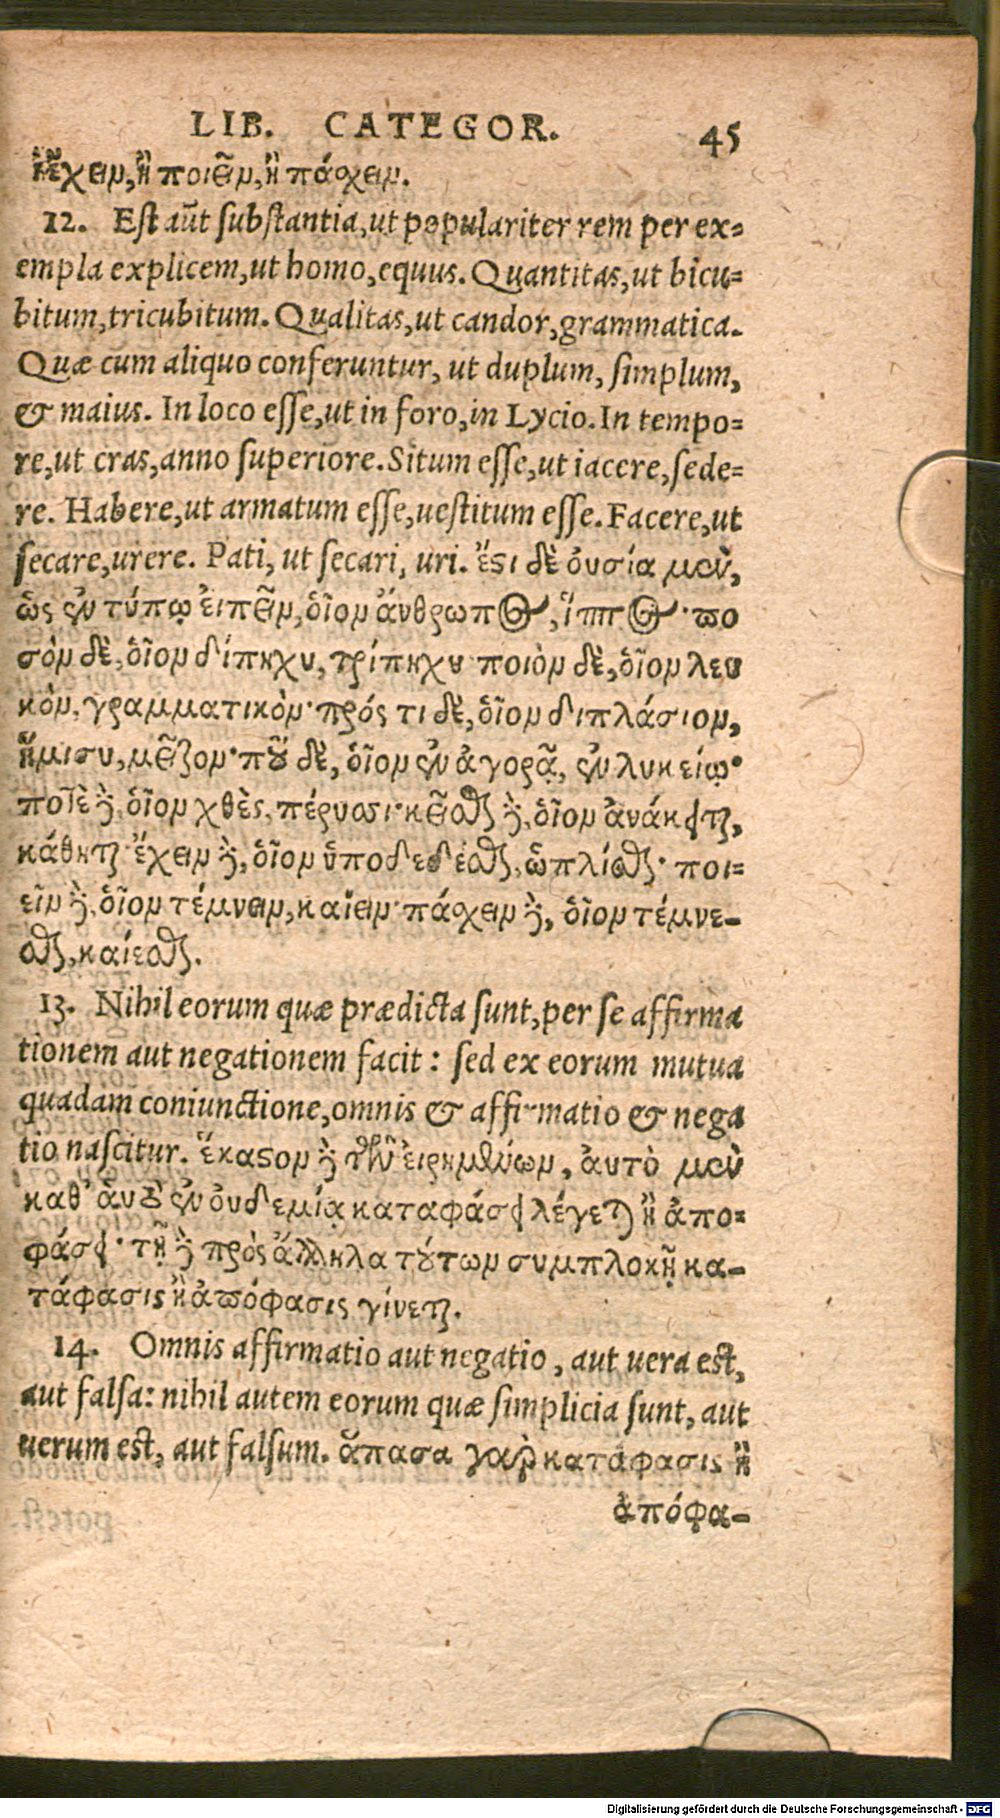 LIB. CATEGOR. 45
ἢ ἔχειν, ἢ ποιεῖν, ἢ πάσχειν.
12. Est aūt substantia, ut populariter rem per ex-
empla explicem, ut homo, equus. Quantitas, ut bicu-
bitum, tricubitum. Qualitas, ut candor, grammatica.
Quæ cum aliquo conferuntur, ut duplum, simplum,
& maius. In loco esse, ut in foro, in Lycio. In tempo-
re, ut cras, anno superiore. Situm esse, ut iacere, sede-
re. Habere, ut armatum esse, uestitum esse. Facere, ut
secare, urere. Pati, ut secari, uri. ἔστι δὲ ὀυσία μὲν,
ὡς ἐν τύπῳ ἐιπεῖν, ὁῖον ἄνθρωπος, ἵππος· πο
σὸν δὲ, ὁῖον δίπηχυ, τρίπηχυ· ποιὸν δὲ, ὁῖον λευ
κὸν, γραμματικὸν· πρός τι δὲ, ὁῖον διπλάσιον,
ἥμισυ, μεῖζον· ποῦ δὲ, ὁῖον ἐν ἀγορᾷ, ἐν λυκείῳ·
ποτὲ δὲ, ὁῖον χθὲς, πέρυσι· κεῖσθαι δὲ, ὁῖον ἀνάκειται,
κάθηται· ἔχειν δὲ, ὁῖον ὑποδεδέσθαι, ὡπλίσθαι· ποι-
εῖν δὲ, ὁῖον τέμνειν, καίειν· πάσχειν δὲ, ὁῖον τέμνε-
σθαι, καίεσθαι.
13. Nihil eorum quæ prædicta sunt, per se affirma
tionem aut negationem facit: sed ex eorum mutua
quadam coniunctione, omnis & affirmatio & nega
tio nascitur. ἕκαστον δὲ τῶν ἐιρημένων, ἀυτὸ μὲν
καθ' ἁυτὸ ἐν ὀυδεμίᾳ καταφάσει λέγεται ἢ ἀπο-
φάσει· τῇ δὲ πρὸς ἄλληλα τούτων συμπλοκῇ κα-
τάφασις ἢ ἀπόφασις γίνεται.
14. Omnis affirmatio aut negatio, aut uera est,
aut falsa: nihil autem eorum quæ simplicia sunt, aut
uerum est, aut falsum. ἅπασα γὰρ κατάφασις ἢ
ἀπόφα-
Digitalisierung gefördert durch die Deutsche Forschungsgemeinschaft - DFG